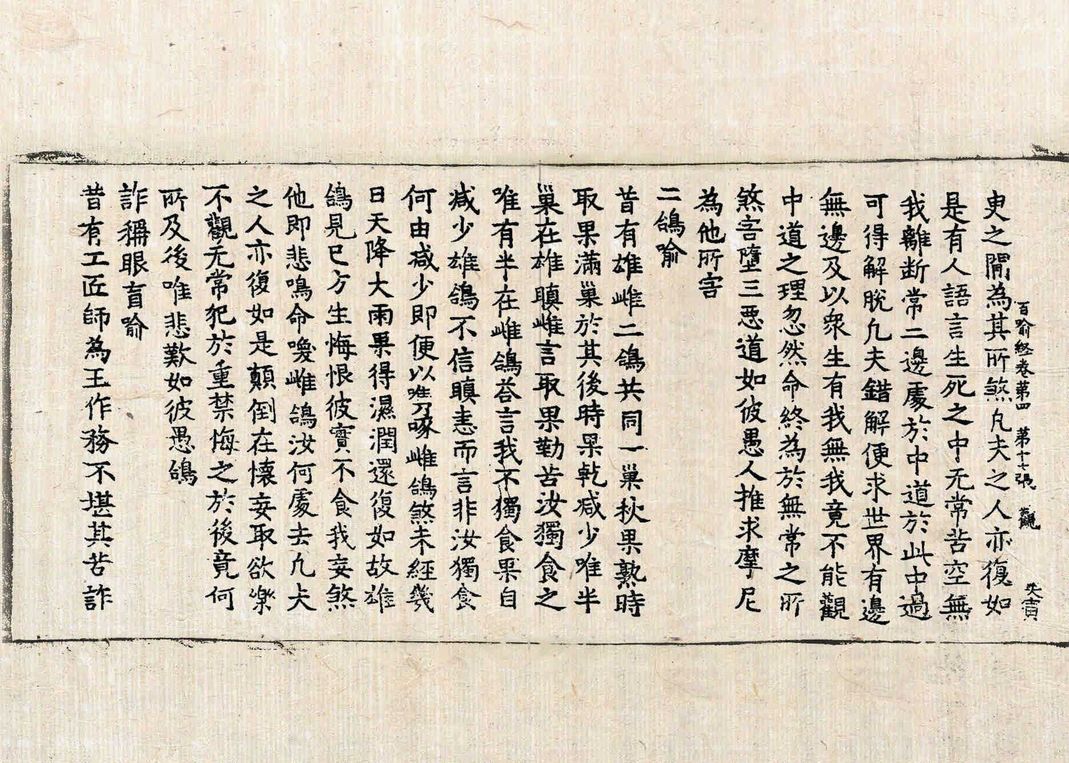 百喻経卷第四 第十七張 觀
史之間為其所煞凡夫之人亦復如
是有人語言生死之中无常苦空無
我離断常二邊處於中道於此中過
可得解脫凡夫錯解便求世界有邊
無邊及以衆生有我無我竟不能觀
中道之理忽然命終為於無常之所
煞害墮三惡道如彼愚人推求摩尼
為他所害
二鴿喻
昔有雄雌二鴿共同一巢秋果熟時
取果滿巢於其後時果乾減少唯半
巢在雄瞋雌言取果勤苦汝獨食之
唯有半在雌鴿荅言我不獨食果自
減少雄鴿不信瞋恚而言非汝獨食
何由減少即便以觜啄雌鴿煞未經幾
日天降大雨果得濕潤還復如故雄
鴿見已方生悔恨彼實不食我妄煞
他即悲鳴命喚雌鴿汝何處去凡夫
之人亦復如是顛倒在懷妄取欲樂
不觀无常犯於重禁悔之於後竟何
所及後唯悲歎如彼愚鴿
詐稱眼盲喻
昔有工匠師為王作務不堪其苦詐